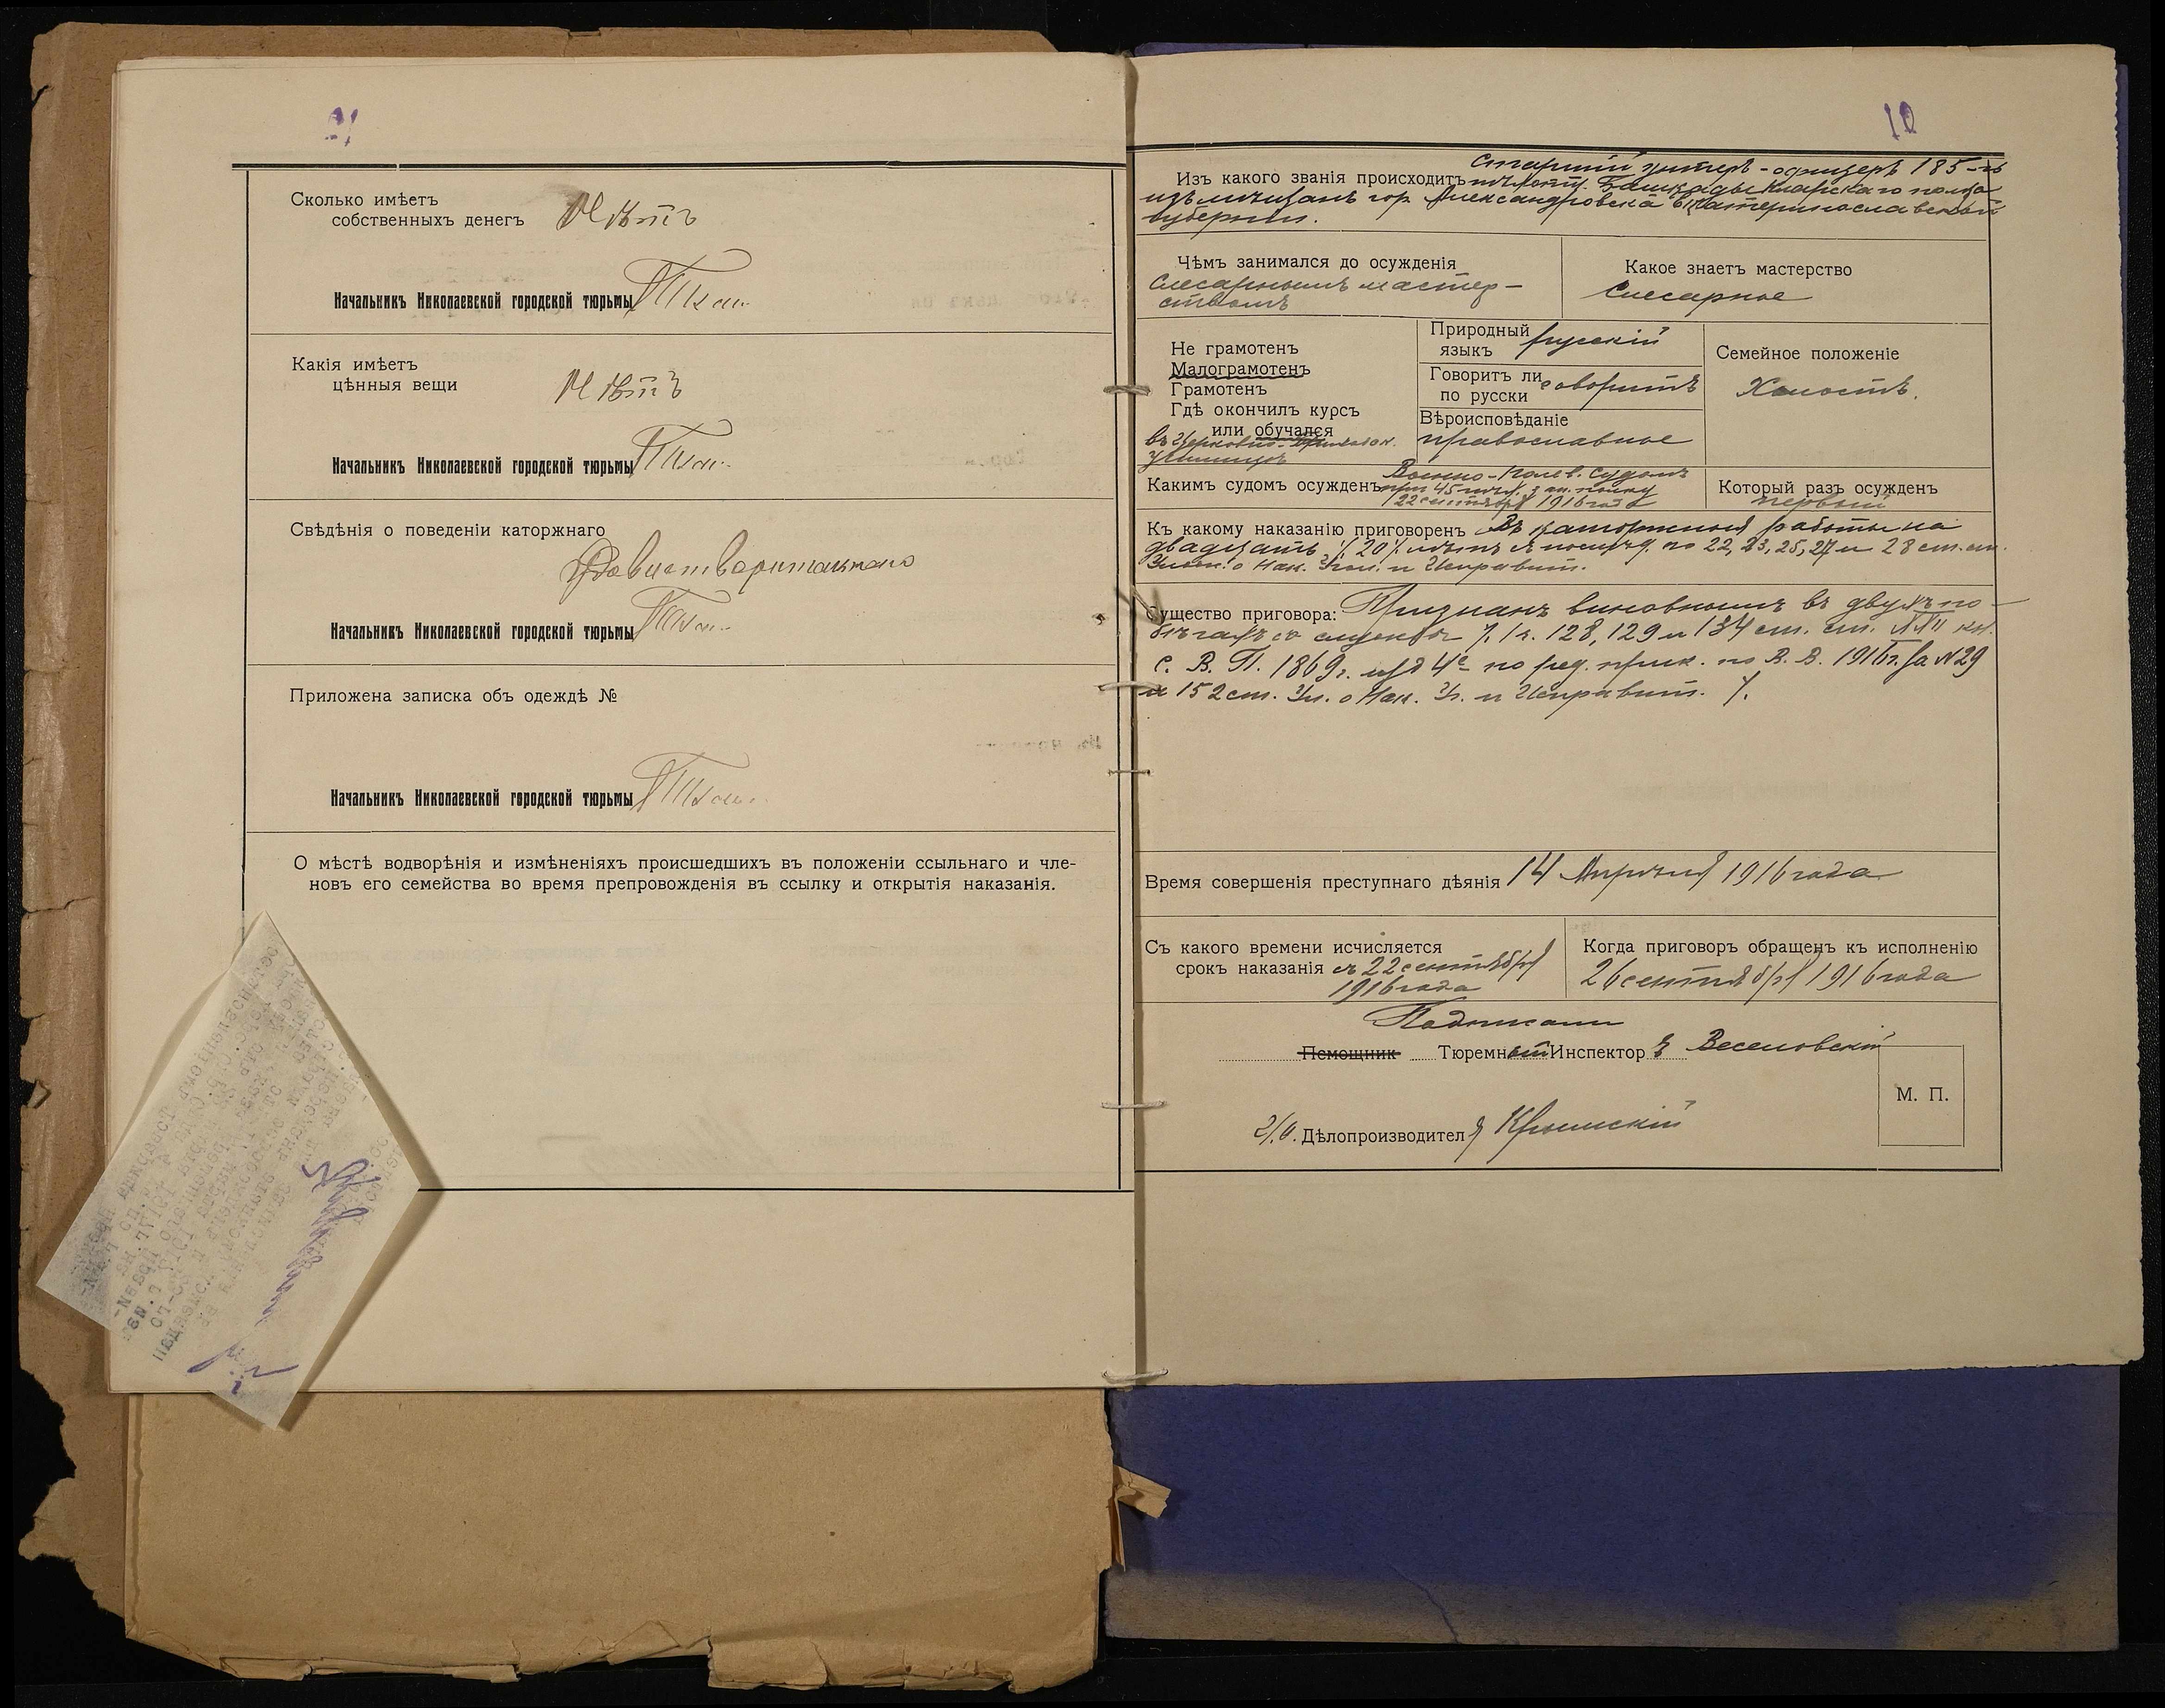 Сколько имѣетъ
собственныхъ денегъ Нѣтъ
Начальникъ Николаевской городской тюрьмы
Какія имѣетъ
цѣнныя вещи Нѣтъ
Начальникъ Николаевской городской тюрьмы
Свѣдѣнія о поведеніи каторжнаго
Удовлетворительнаго
Начальникъ Николаевской городской тюрьмы
Приложена записка объ одеждѣ №
Начальникъ Николаевской городской тюрьмы
О мѣстѣ водворѣнія и измѣненіяхъ происшедшихъ въ положеніи ссыльнаго и чле-
новъ его семейства во время препровожденія въ ссылку и открытія наказанія.
10
Изъ какого званія происходитъ старшій унтеръ-офицеръ 185-го
пѣхотн. Башкадыкларскаго полка
изъ мѣщанъ гор. Александровска Екатеринославской
губерніи.
Чѣмъ занимался до осужденія
Слесарнымъ мастер-
ствомъ
Какое знаетъ мастерство
Слесарное
Не грамотенъ
Малограмотенъ
Грамотенъ
Гдѣ окончилъ курсъ
или обучался
въ Церковно-Приходск.
училищѣ
Природный
языкъ русскій
Говоритъ ли
по русски говоритъ
Вѣроисповѣданіе
православное
Семейное положеніе
Холостъ.
Какимъ судомъ осужденъ Военно-Полев. Судомъ
при 45 полку
22 сентября 1916 года
Который разъ осужденъ
первый
Къ какому наказанію приговоренъ Въ каторжныя работы на
двадцать /20/ лѣтъ съ послѣд. по 22, 23, 25, 27 и 28 ст. ст.
Улож. о Нак. Угол. и Исправит.
Существо приговора: Признанъ виновнымъ въ двухъ по-
бѣгахъ со службы /. 1 ч. 128, 129 и 134 ст. ст. XXII кн.
С. В. П. 1869 г. изд 4е по ред. прик. по В. В. 1916 г. за N 29
и 152 ст. Ул. о Нак. Уг. и Исправит. /.
Время совершенія преступнаго дѣянія 14 Апрѣля 1916 года
Съ какого времени исчисляется
срокъ наказанія съ 22 сентября
1916 года
Когда приговоръ обращенъ къ исполненію
26 сентября 1916 года
Подписали
Помощник Тюремный Инспекторъ Веселовскій
И/О. Дѣлопроизводителя Крымскій
М. П.